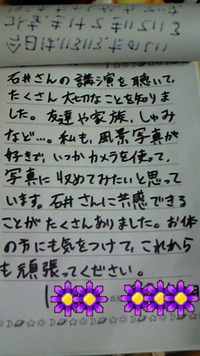 石井さんの講演を聴いて、
たくさん大切なことを知りま
した。友達や家族、しゅみ
など…。私も、風景写真が
好きで、いつかカメラを使って、
写真に収めてみたいと思って
います。石井さんに共感できる
ことがたくさんありました。お体
の方にも気をつけて、これから
も頑張ってください。